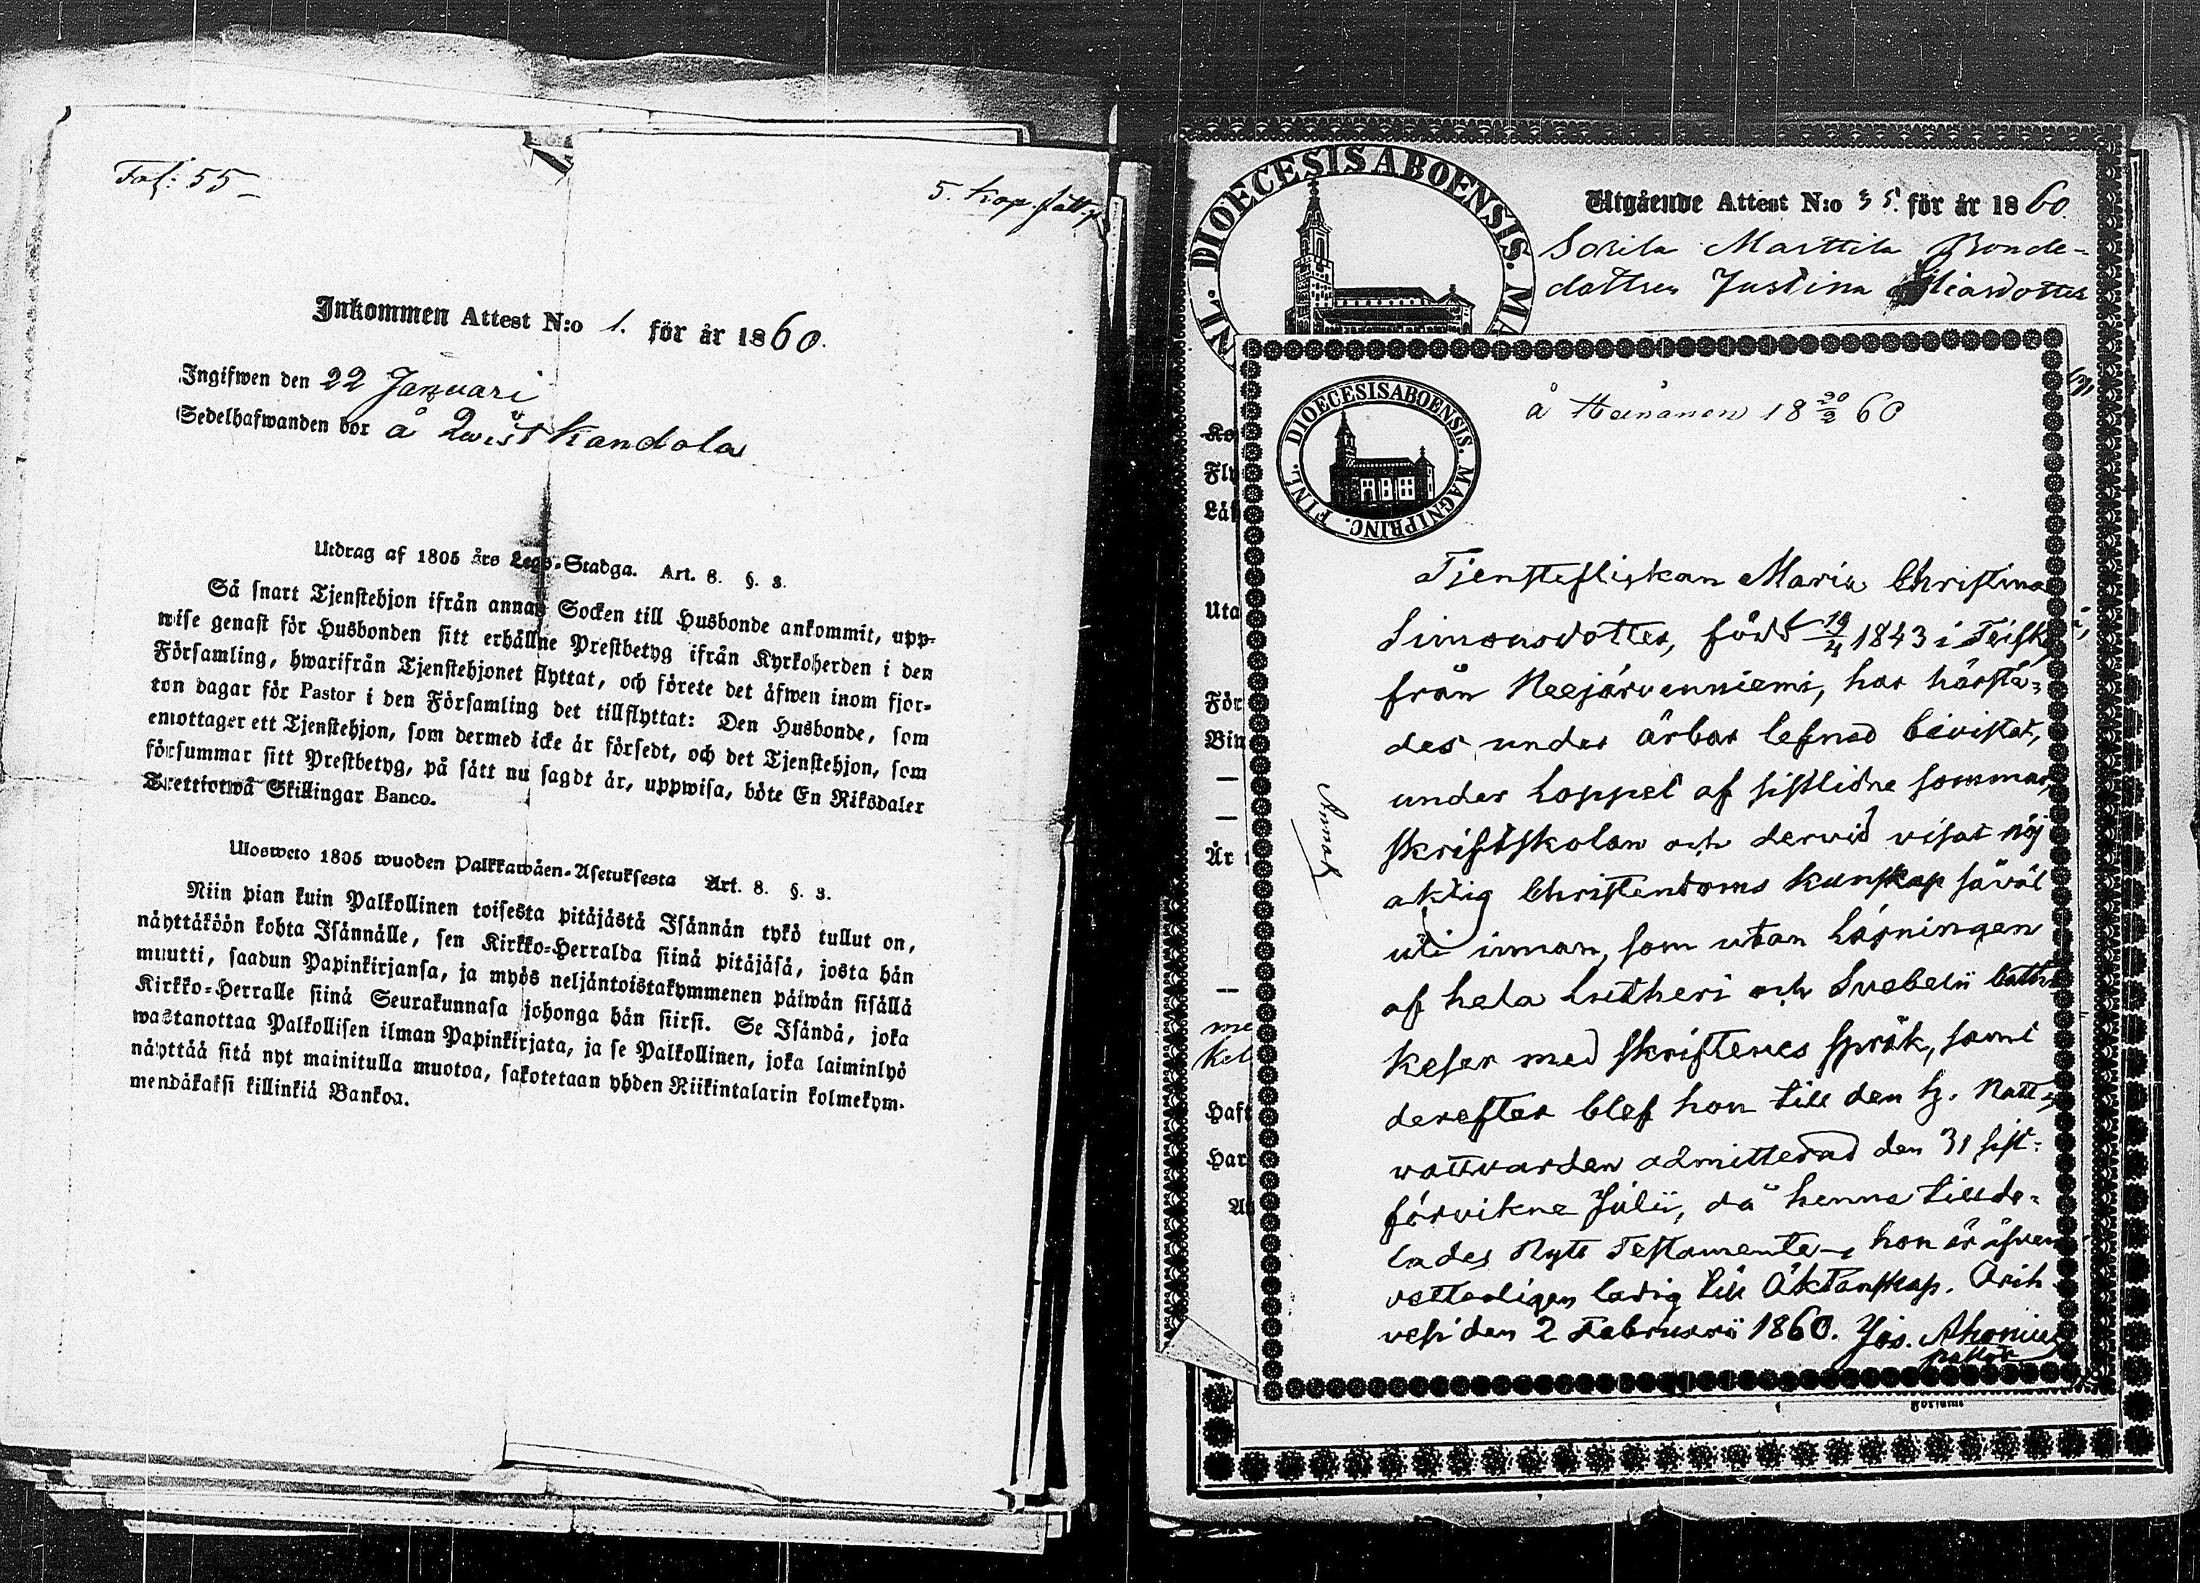 Fol: 55
5. kop.
Inkommen Attest N:o 1. för år 1860.
Ingifwen den 22 Januari
Sedelhafwanden bor å Qwist Kandola
Utdrag af 1805 års Lego-Stadga. Art. 8. §. 3.
Så snart Tjenstehjon ifrån annan Socken till Husbonde ankommit, upp-
wise genast för Husbonden sitt erhållne Prestbetyg ifrån Kyrkoherden i den
Församling, hwarifrån Tjenstehjonet flyttat, och förete det äfwen inom fjor-
ton dagar för Pastor i den Församling det tillflyttat: Den Husbonde, som
emottager ett Tjenstehjon, som dermed icke är försedt, och det Tjenstehjon, som
försummar sitt Prestbetyg, på sätt nu sagdt är, uppwisa, böte En Riksdaler
Trettiotwå Skillingar Banco.
Ulosweto 1805 wuoden Palkkawäen-Asetuksesta Art. 8. §. 3.
Niin pian kuin Palkollinen toisesta pitäjästä Isännän tykö tullut on,
näyttäköön kohta Isännälle, sen Kirkko-Herralda siinä pitäjäsä, josta hän
muutti, saadun Papinkirjansa, ja myös neljäntoistakymmenen päiwän sisällä
Kirkko-Herralle siinä Seurakunnasa johonga hän siirsi. Se Isändä, joka
wastanottaa Palkollisen ilman Papinkirjata, ja se Palkollinen, joka laiminlyö
näyttää sitä nyt mainitulla muotoa, sakotetaan yhden Riikintalarin kolmekym-
mendäkaksi killinkiä Bankoa.
DIOECESIS ABOENSIS. MA
NL.
Utgående Attest N:o 35. för år 1860.
Sorila Marttila Bonde-
dottren Justina
DIOECESIS ABOENSIS. MAGNI PRINC. FINL.
å 18 20/2 60
Tjensteflickan Maria Christina
Simonsdotter, född 19/4 1843 i Teisko
från Neejärvenniemi, har härstä-
des under ärbar lefnad bevistat,
under loppet af sistlidne sommar,
skriftskolan och dervid visat nöj
aktig Christendoms kunskap såväl
uti innan, som utan läsningen
af hela Lutheri och Svebelii Cathe
keser med skriftenes språk, samt
derefter blef hon till den H. Natt-
vattvarden admitterad den 31 sist-
förvikne Julii, då henne tillde-
lades Nytt Testamente, hon är äfven
vetterligen ledig till Äktenskap. Orih
vesi den 2 Februarii 1860. Jos. Ahonius
Ko
Fly
Läs
Uta
För
Bin
År
me
Kel
Haft
Har